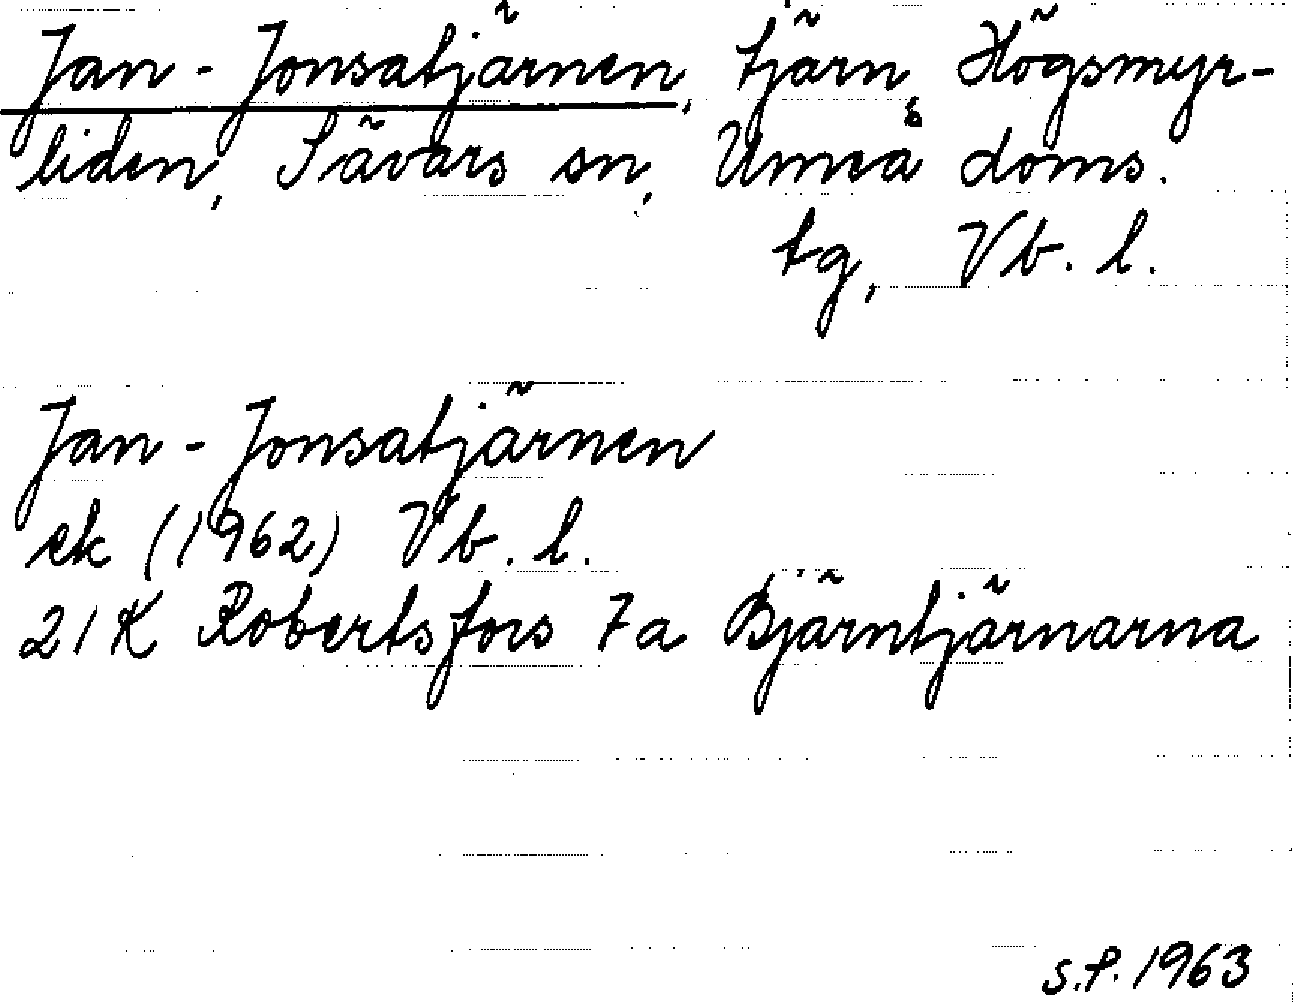 Jan-Jonsatjärnen, tjärn, Högsmyr-
liden, Sävars sn, Umeå doms.
tg, Vb. l.
Jan-Jonsatjärnen
ek (1962) Vb. l.
21K Robertsfors 7a Bjärntjärnarna
S.P. 1963